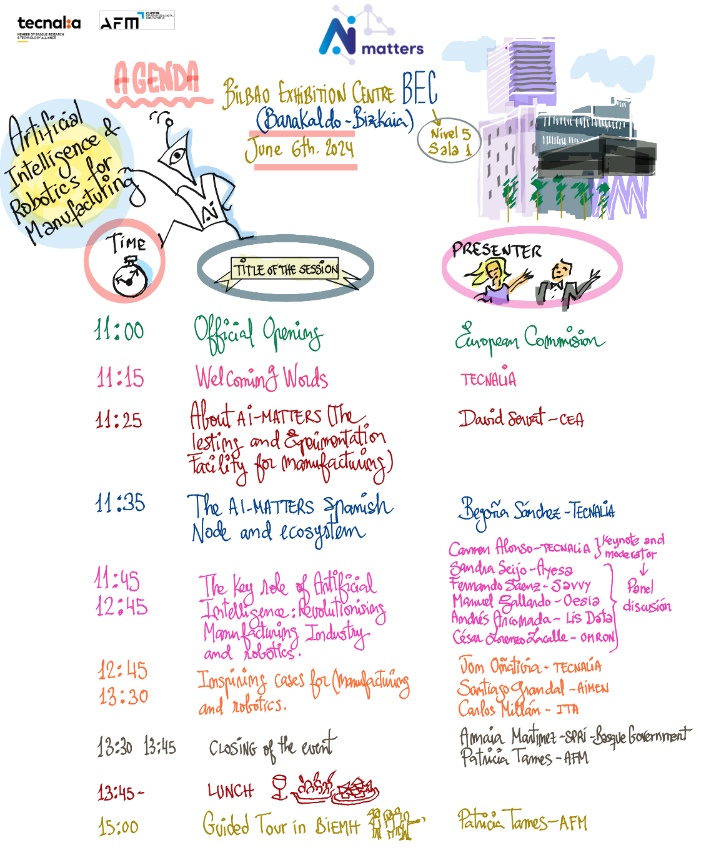 tecnalia
MEMBER OF BASQUE RESEARCH
& TECHNOLOGY ALLIANCE
AFM
CLUSTER
Ai matters
AGENDA
BILBAO EXHIBITION CENTRE BEC
(Barakaldo-Bizkaia)
June 6th. 2024
Nivel 5
Sala 1
Artificial
Intelligence &
Robotics for
Manufacturing
Ai
TIME
TITLE OF THE SESSION
PRESENTER
11:00 Official Opening European Commision
11:15 Welcoming Words TECNALIA
11:25 About Ai-MATTERS (The David Servat-CEA
Testing and Experimentation
Facility for manufacturing)
11:35 The AI-MATTERS Spanish Begoña Sánchez-TECNALIA
Node and ecosystem
Carmen Alonso-TECNALIA } Keynote and
moderator
Sandra Seijo-Ayesa
11:45 The Key role of Artificial Fernando Sáenz-Savvy
12:45 Intelligence: Revolutionising Manuel Gallardo-Oesia
Manufacturing Industry Andrés Anconada-Lis Data
and robotics. César Lorenzo Lacalle-OMRON
Panel
discusión
12:45 Inspiring cases for Manufacturing Jom Oñativia-TECNALIA
13:30 and robotics. Santiago Grandal-AIMEN
Carlos Millán-ITA
13:30 13:45 CLOSING of the event Amaia Martinez-SPRI-Basque Government
Patricia Tames-AFM
13:45- LUNCH
15:00 Guided Tour in BIEMH Patricia Tames-AFM